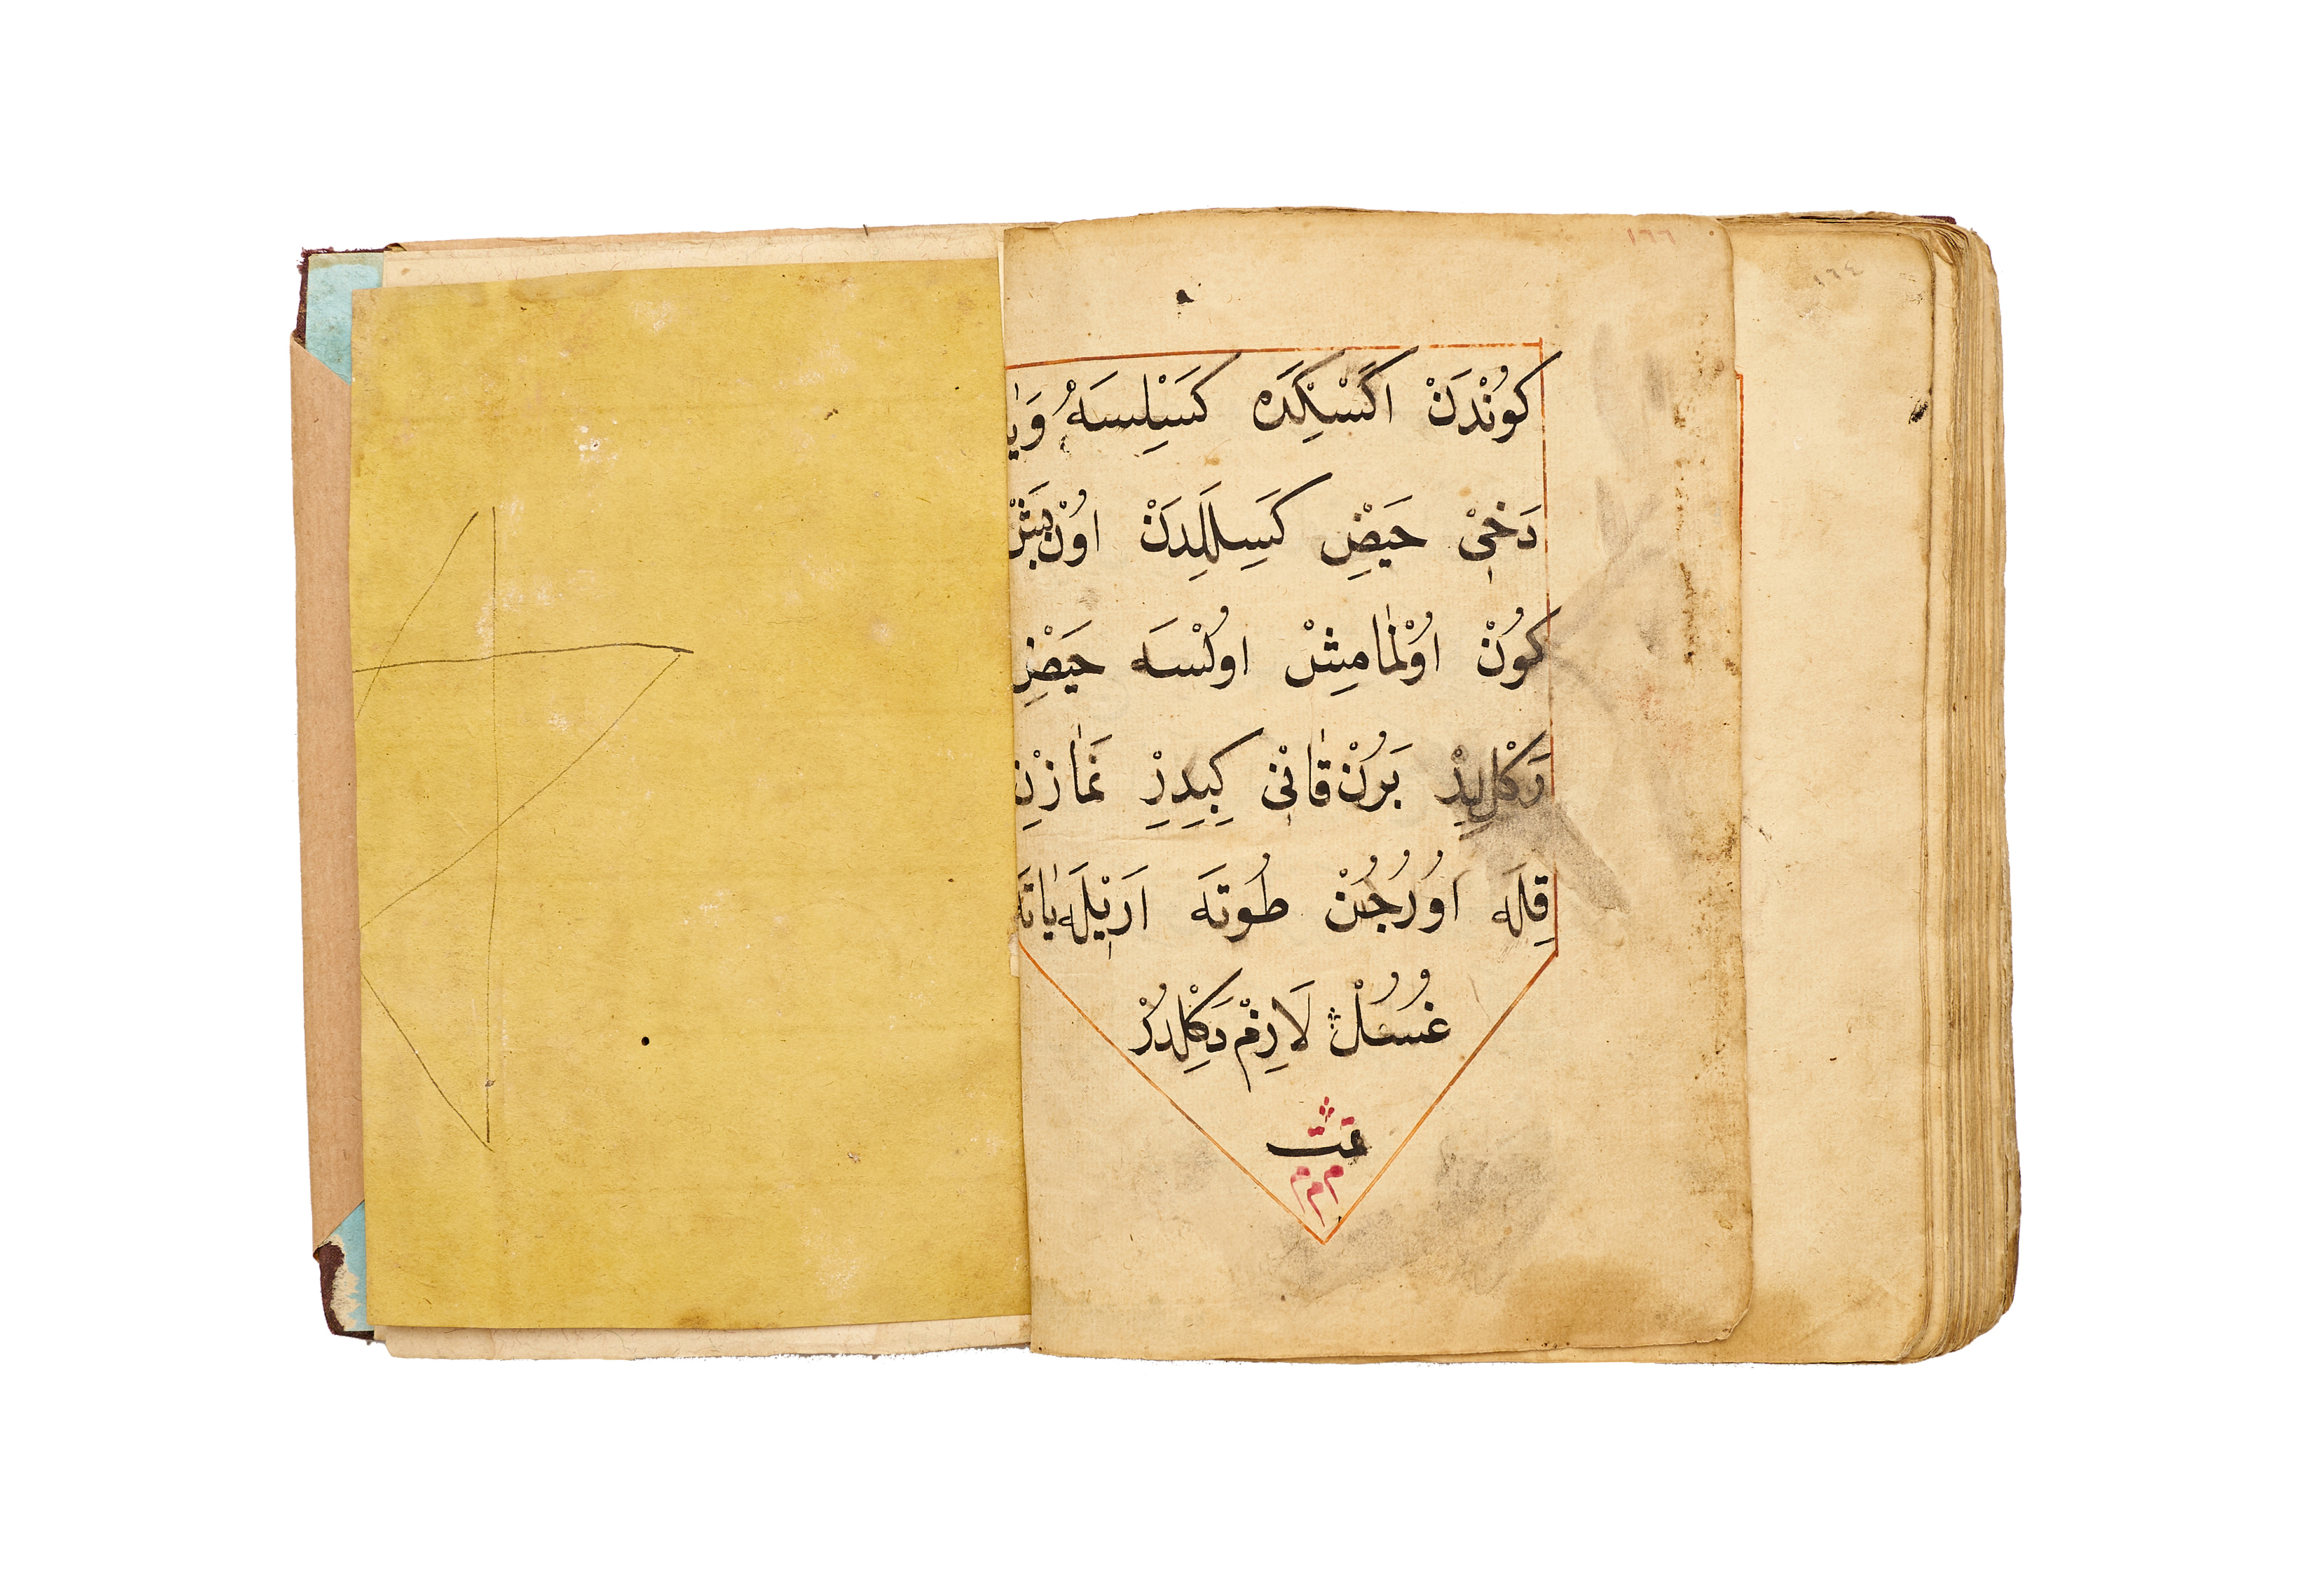 ١٦٦
١٦٤
كوُنْدَنْ اكَسْكِدَه كَسَيْلِسَهْ وَيٰا
دَخيٖ حَيْضِ كَسِلَلِدَنْ اوُنْ بَشْ
كوُنْ اوُلْمٰامِشْ اوُلْسَه حَيْضِ
دَكْلِيدِرْ بَرُنْ قٰانيٖ كِبِيدِرْ نَمٰازْنِ
قِلَه اوُرُجُنْ طُوتَه اَرَيٖلَه يٰاتَه
غُسُلْ لَازِمْ دَكِلْدُرْ
تمت
م م م